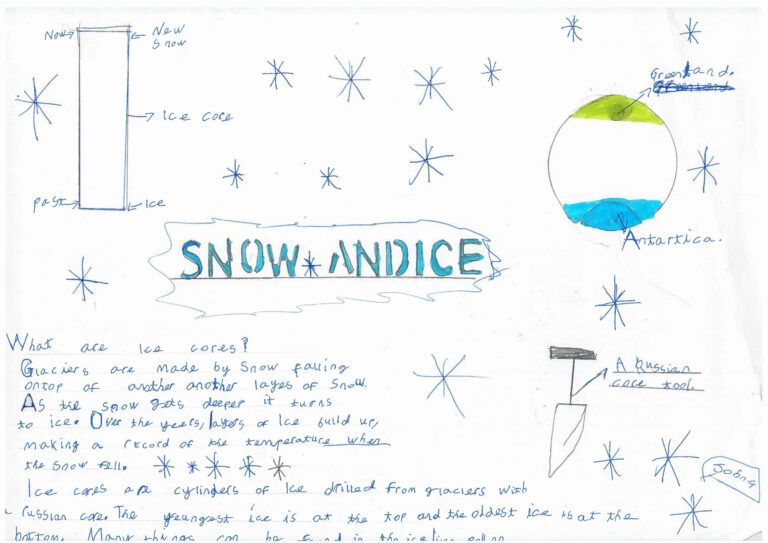 Now
New
Snow
Ice core
past
Ice
Greenland.
Antartica.
SNOW ANDICE
A Russian
core tool.
What are Ice cores?
Glaciers are made by Snow falling
ontop of another another layes of Snow.
As the snow gets deeper it turns
to ice. Over the years, layers of Ice build up,
making a record of the temperature when
the snow fell.
Ice cores are cylinders of Ice drilled from glaciers with
Russian core. The youngest ice is at the top and the oldest ice is at the
bottom. Many things can be found in the ice like